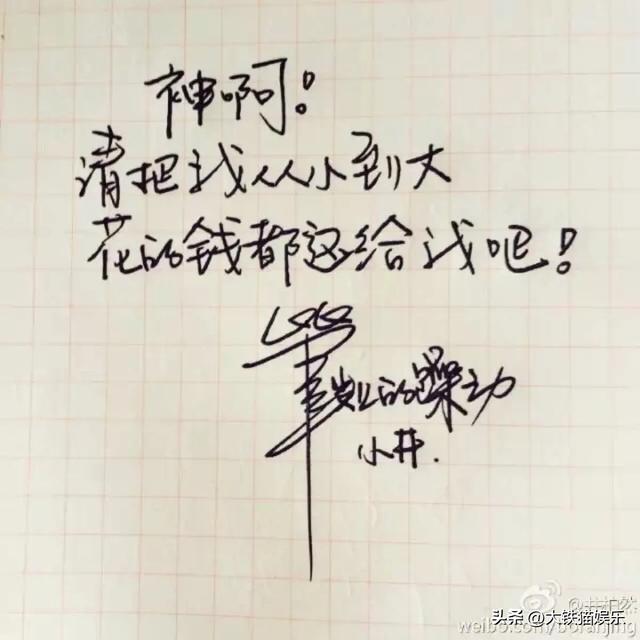 神啊!
请把我从小到大
花的钱都还给我吧!
的躁动
小井.
头条 @大铁猫娱乐
weibo.com/boranjing